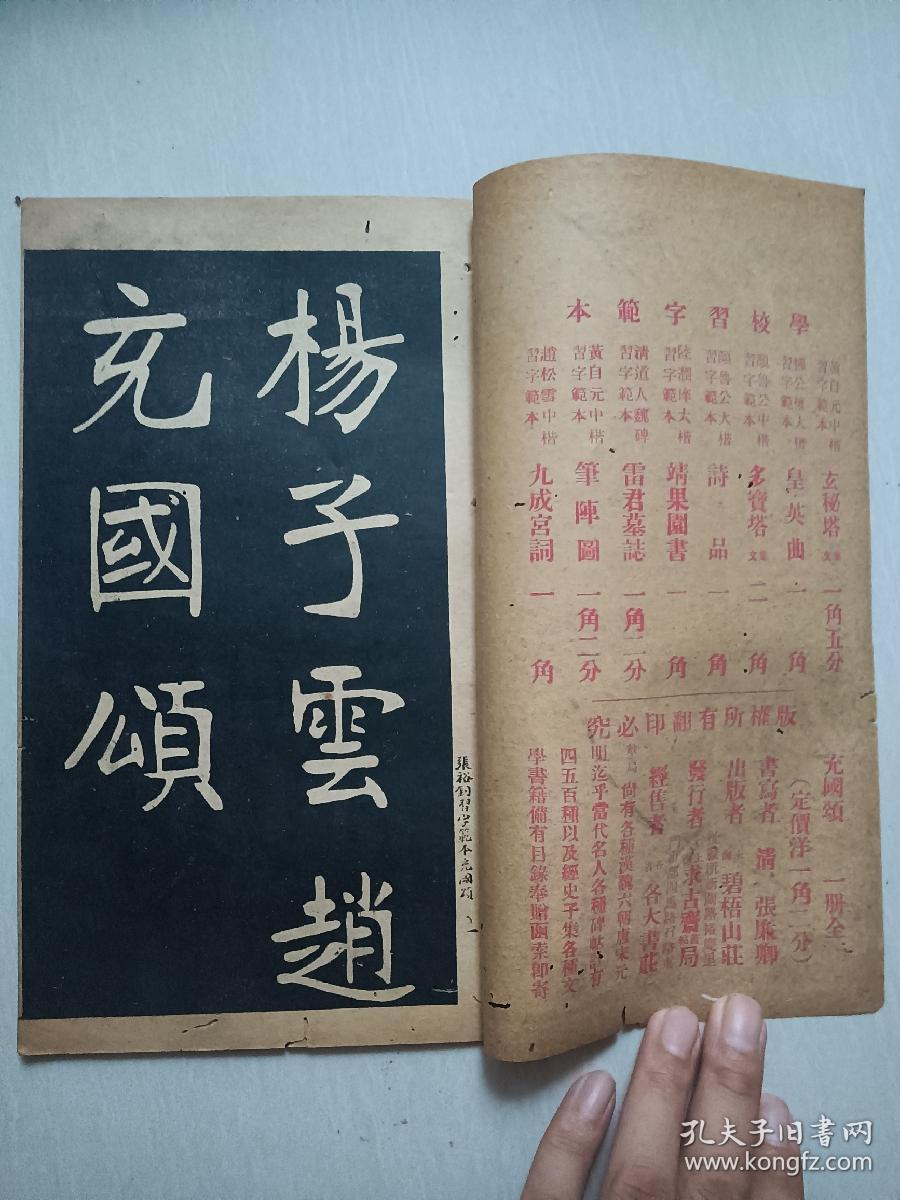 學校習字範本
黃自元中楷習字範本 玄秘塔 一角五分
習字範本 皇英曲 一角
顏魯公中楷習字範本 多寶塔 二角
顏魯公大楷習字範本 詩品 一角
陸潤庠大楷習字範本 靖果園書 一角
清道人魏碑習字範本 雷君墓誌 一角二分
黃自元中楷習字範本 筆陣圖 一角二分
趙松雪中楷習字範本 九成宮詞 一角
版權所有翻印必究
充國頌 一册全
(定價洋一角二分)
書寫者 清 張廉卿
出版者 碧梧山莊
發行者 求古齋局
經售者 各大書莊
尚有各種漢魏六朝唐宋元
明迄乎當代名人各種碑帖計有
四五百種以及經史子集各種文
學書籍備有目錄奉贈函索即寄
張裕釗習字範本充國頌
楊子雲趙
充國頌
孔夫子旧书网
www.kongfz.com